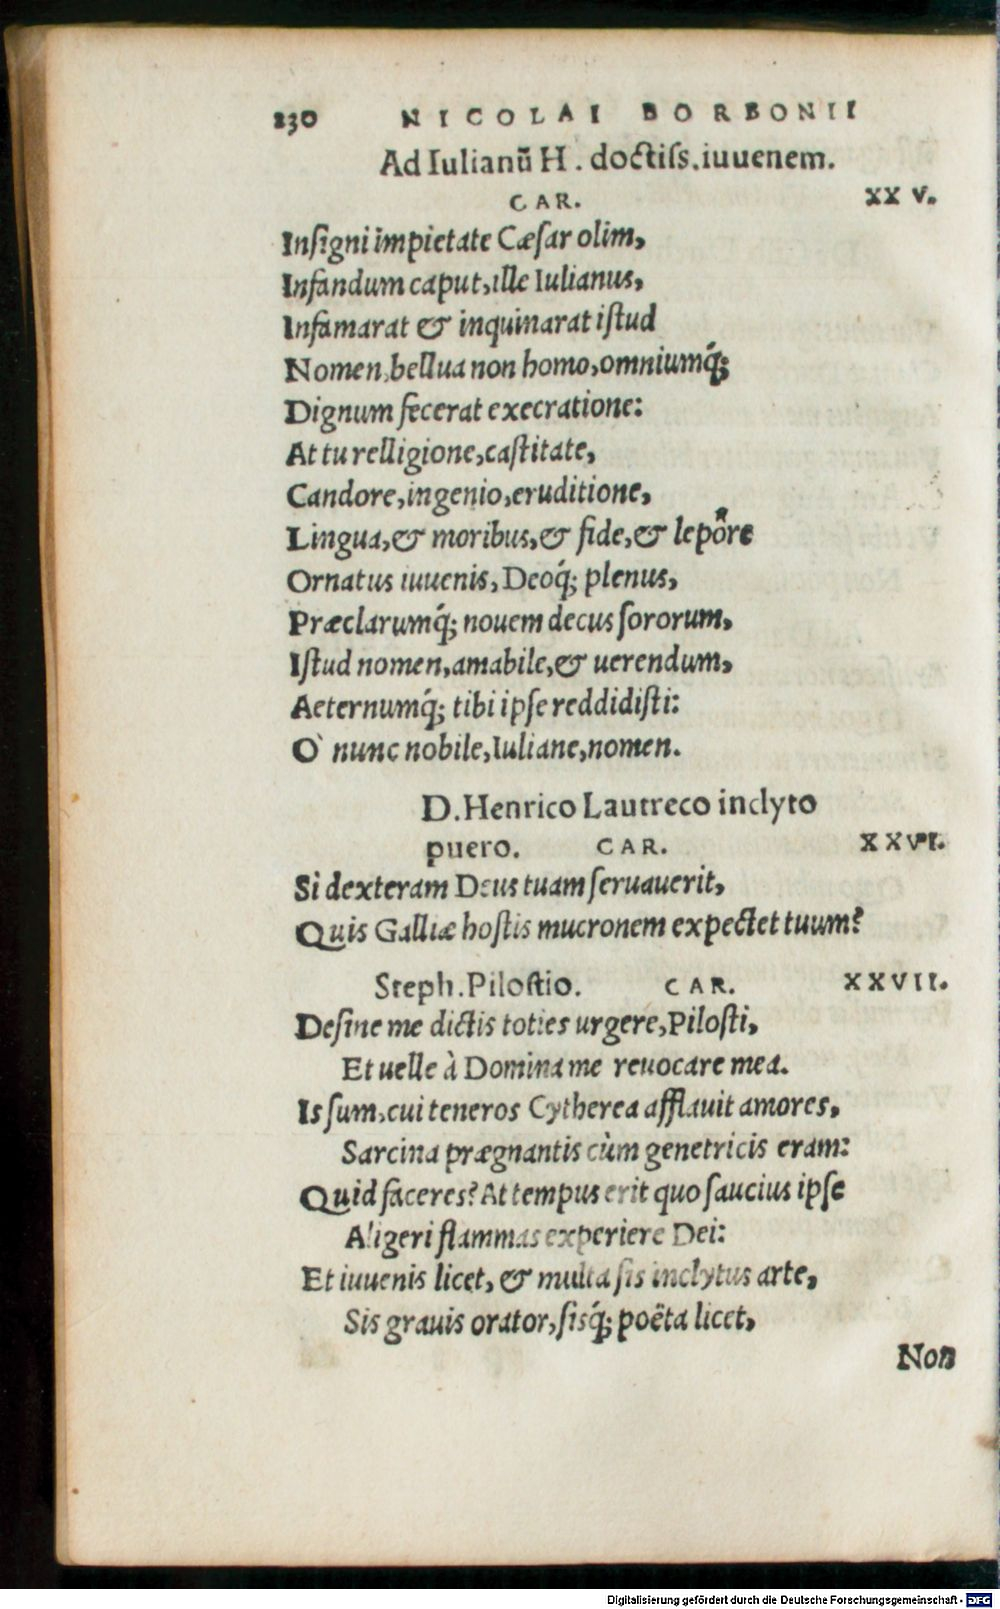 230 NICOLAI BORBONII
Ad Iulianū H. doctiss.iuuenem.
CAR. XXV.
Insigni impietate Cæsar olim,
Infandum caput, ille Iulianus,
Infamarat & inquinarat istud
Nomen, bellua non homo, omniumq́;
Dignum fecerat execratione:
At tu relligione, castitate,
Candore, ingenio, eruditione,
Lingua, & moribus, & fide, & lepore
Ornatus iuuenis, Deoq́; plenus,
Præclarumq́; nouem decus sororum,
Istud nomen, amabile, & uerendum,
Aeternumq́; tibi ipse reddidisti:
O` nunc nobile, Iuliane, nomen.
D. Henrico Lautreco inclyto
puero. CAR. XXVI.
Si dexteram Deus tuam seruauerit,
Quis Galliæ hostis mucronem expectet tuum?
Steph. Pilostio. CAR. XXVII.
Desine me dictis toties urgere, Pilosti,
Et uelle à Domina me reuocare mea.
Is sum, cui teneros Cytherea afflauit amores,
Sarcina prægnantis cùm genetricis eram:
Quid faceres? At tempus erit quo saucius ipse
Aligeri flammas experiere Dei:
Et iuuenis licet, & multa sis inclytus arte,
Sis grauis orator, sisq́; poëta licet,
Non
Digitalisierung gefördert durch die Deutsche Forschungsgemeinschaft - DFG